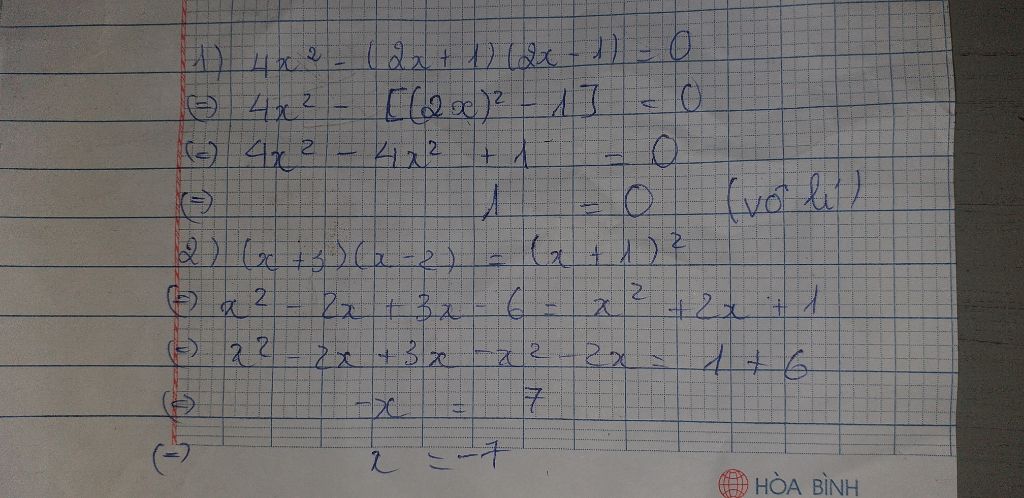 1) 4x² - (2x + 1)(2x - 1) = 0
(=) 4x² - [(2x)² - 1] = 0
(=) 4x² - 4x² + 1 = 0
(=) 1 = 0 (vô lí)
2) (x + 3)(x - 2) = (x + 1)²
(=) x² - 2x + 3x - 6 = x² + 2x + 1
(=) x² - 2x + 3x - x² - 2x = 1 + 6
(=) -x = 7
(=) x = -7
HÒA BÌNH